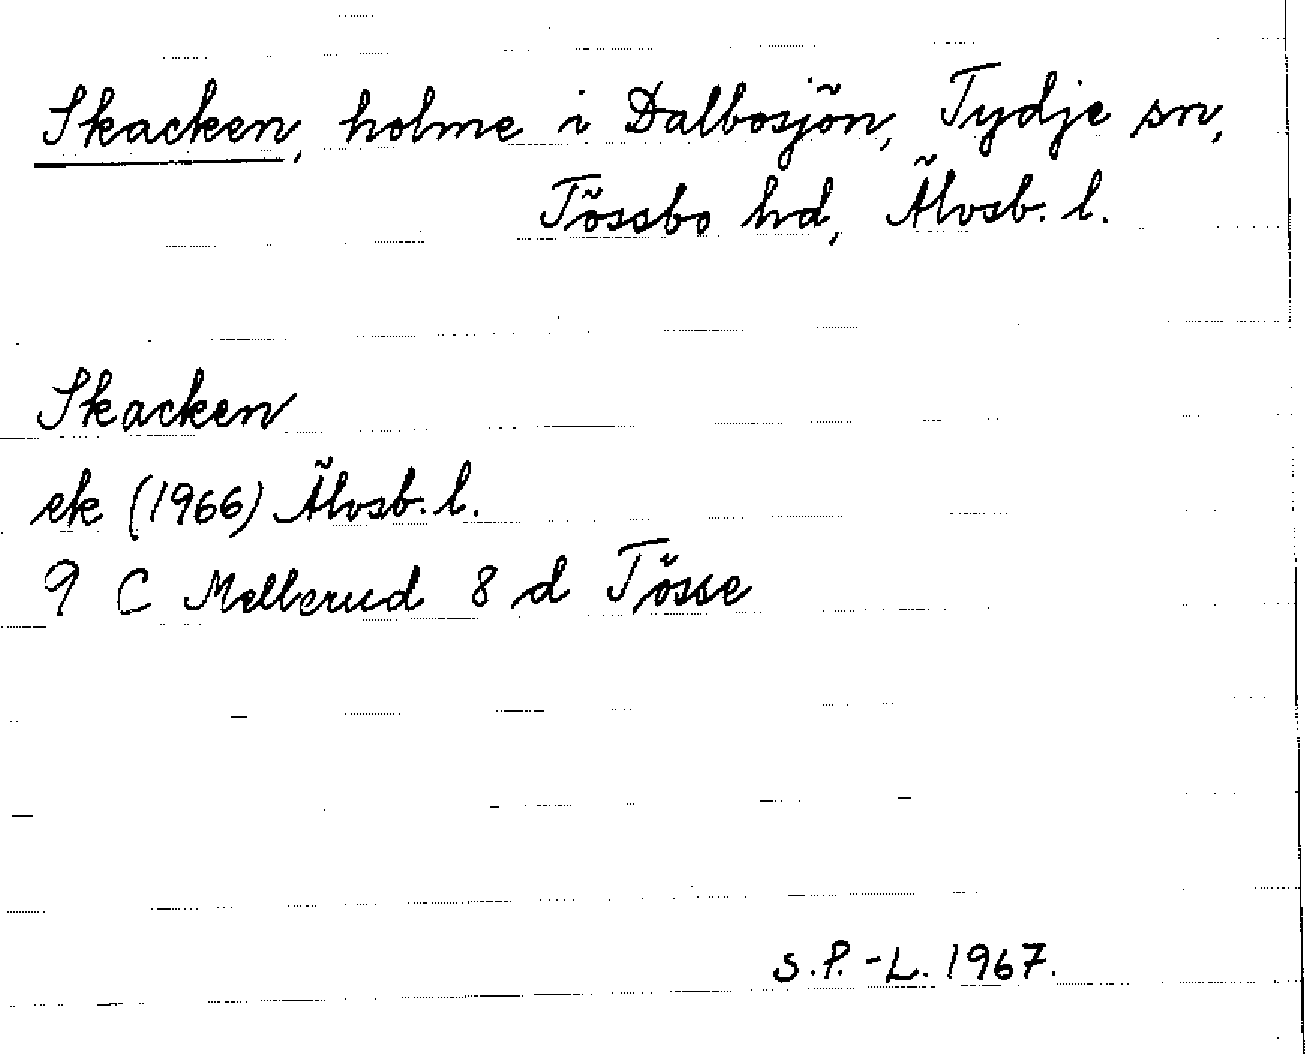 Skacken, holme i Dalbosjön, Tydje sn,
Tössbo hd, Älvsb. l.
Skacken
ek (1966) Älvsb. l.
9 C Mellerud 8 d Tösse
S.P.-L. 1967.